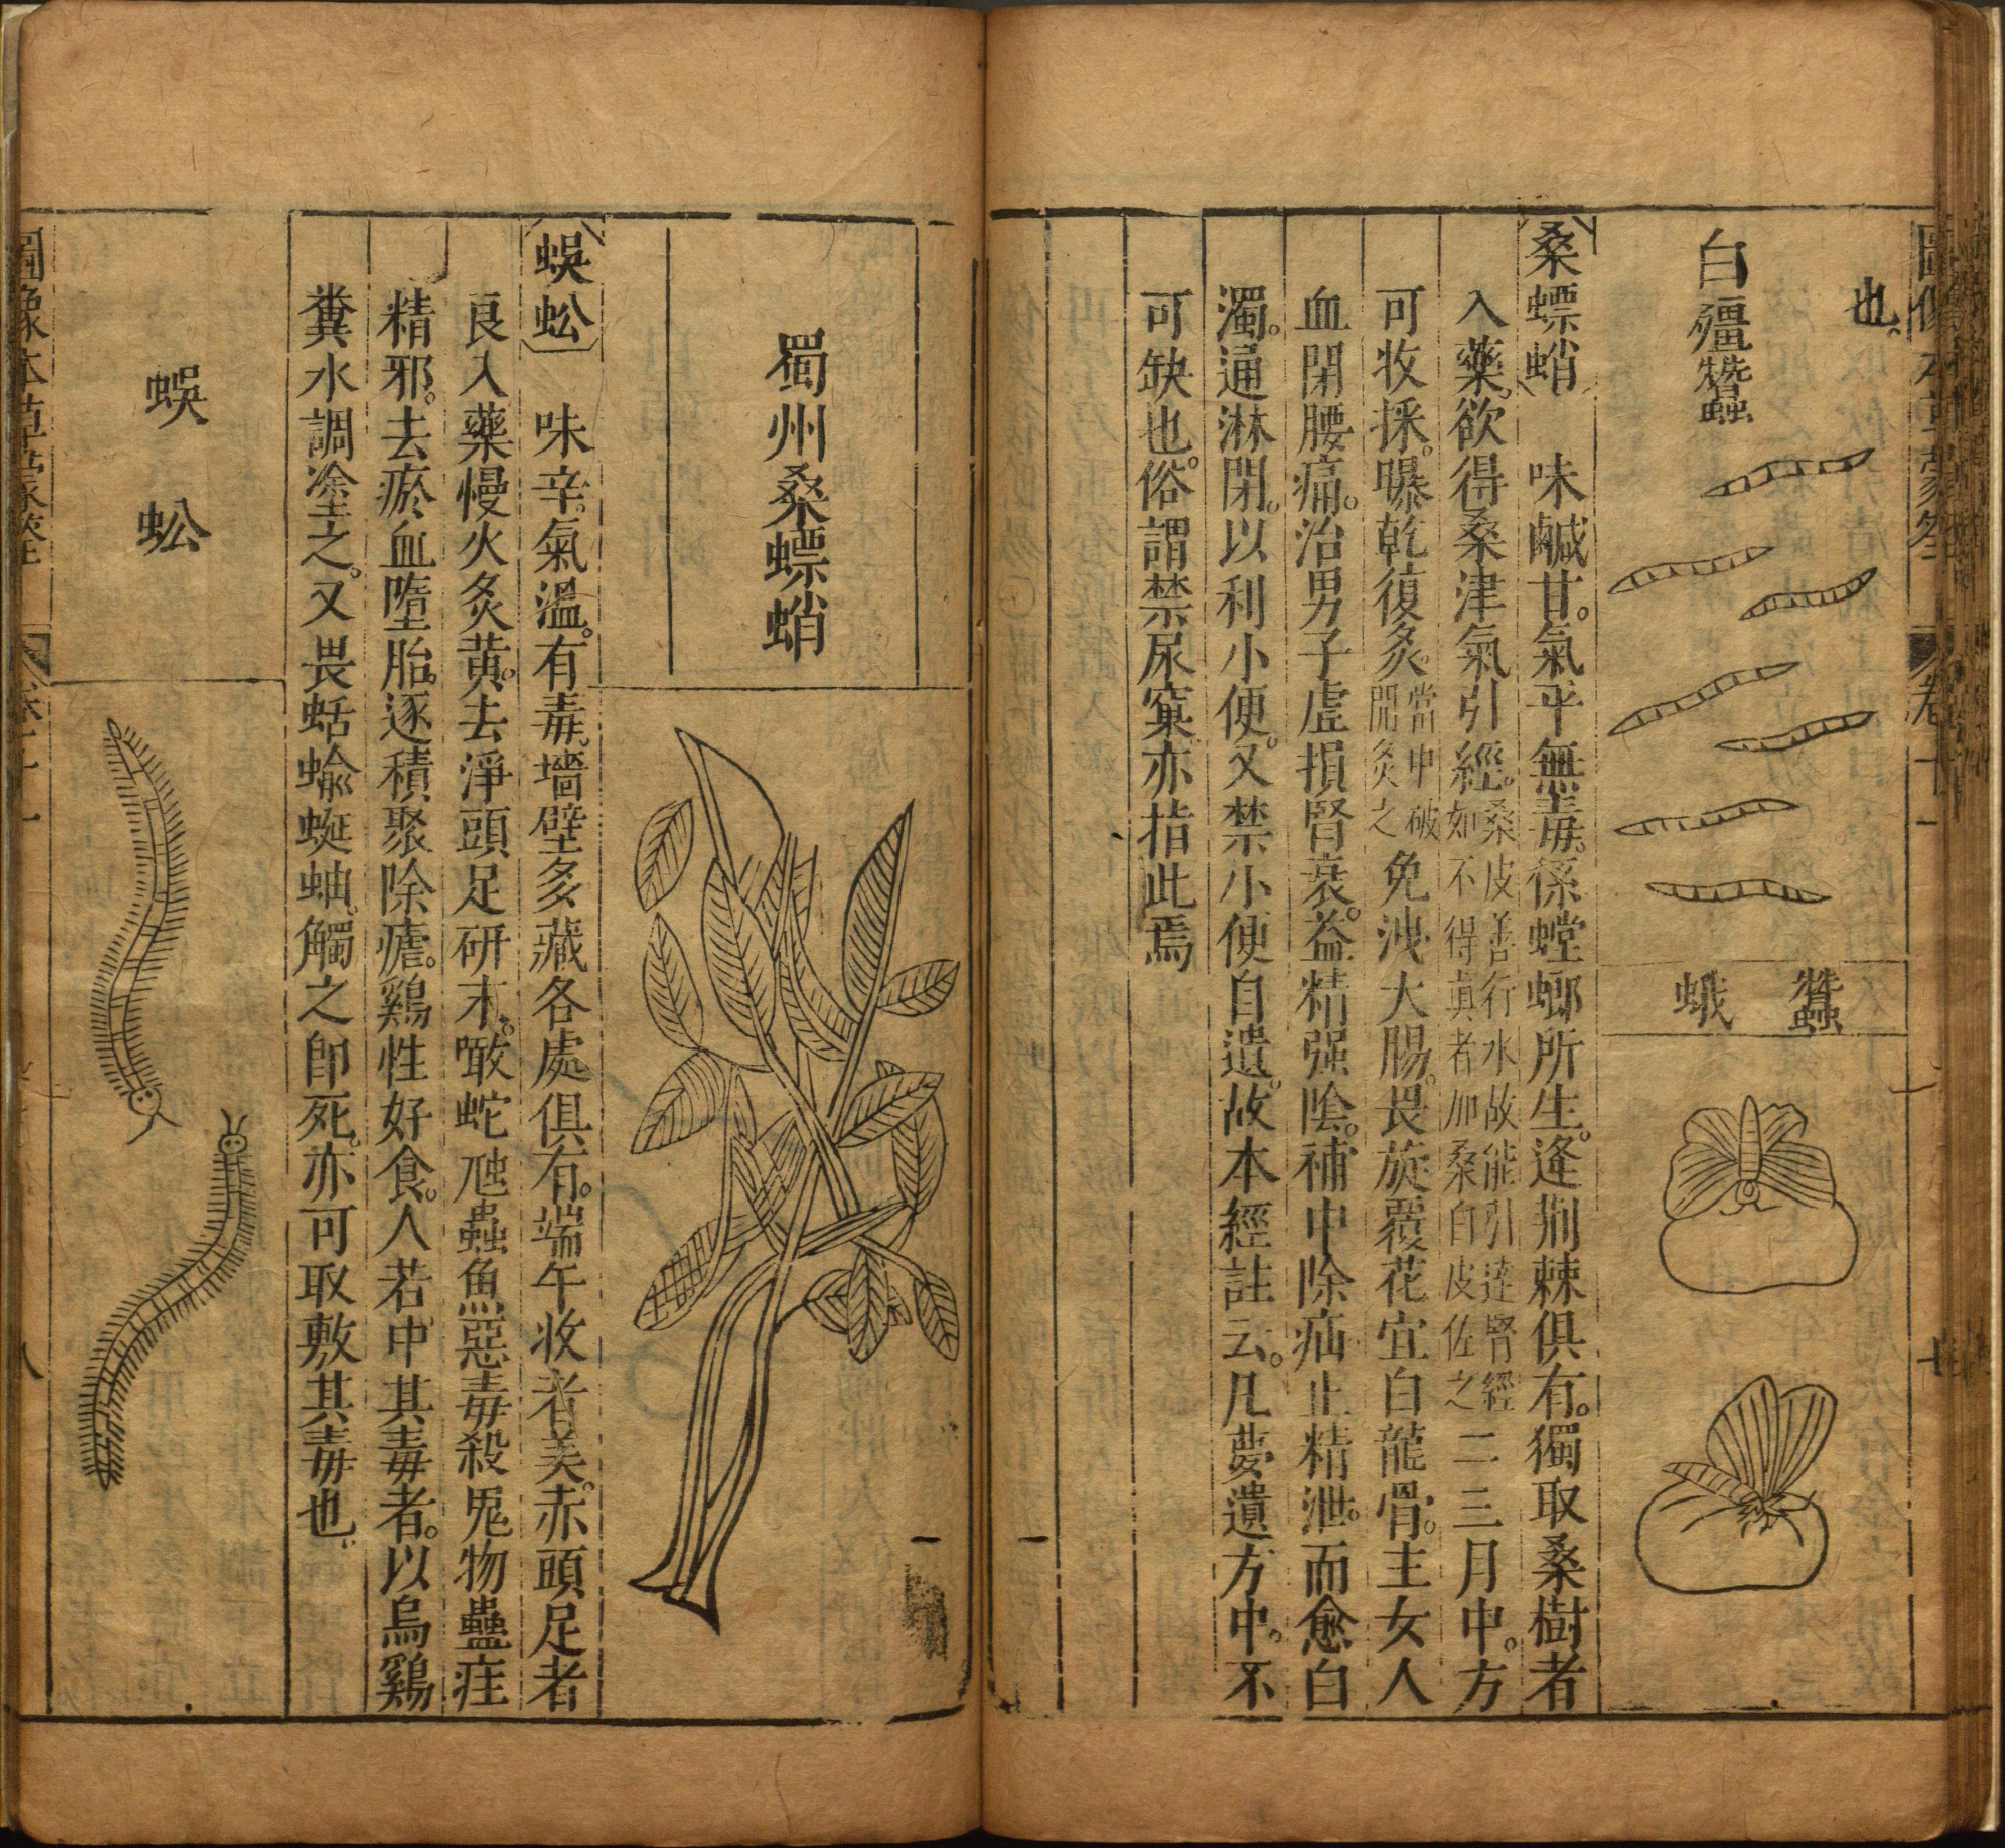 也。
白殭蠶
蠶蛾
桑螵蛸　味鹹甘。氣平無毒。係螳螂所生。逢荆棘俱有。獨取桑樹者
入藥。欲得桑津氣引經。桑皮善行水故能引達腎經如不得眞者加桑白皮佐之二三月中。方
可收採。曝乾復炙。當中破開炙之免洩大腸。畏旋覆花宜白龍骨。主女人
血閉腰痛。治男子虛損腎衰。益精强陰。補中除疝止精泄。而愈白
濁。通淋閉。以利小便。又禁小便自遺。故本經註云。凡夢遺方中。不
可缺也。俗謂禁尿窠。亦指此焉
蜀州桑螵蛸
蜈蚣　味辛。氣溫。有毒。墻壁多藏各處俱有。端午收者美。赤頭足者
良入藥慢火炙黄。去淨頭足研末。噉蛇虺蟲魚惡毒殺鬼物蠱疰
精邪。去瘀血墮胎。逐積聚除瘧。鷄性好食。人若中其毒者。以烏鷄
糞水調塗之。又畏蛞蝓蜒蚰。觸之卽死。亦可取敷其毒也。
蜈蚣
圖像本草蒙筌